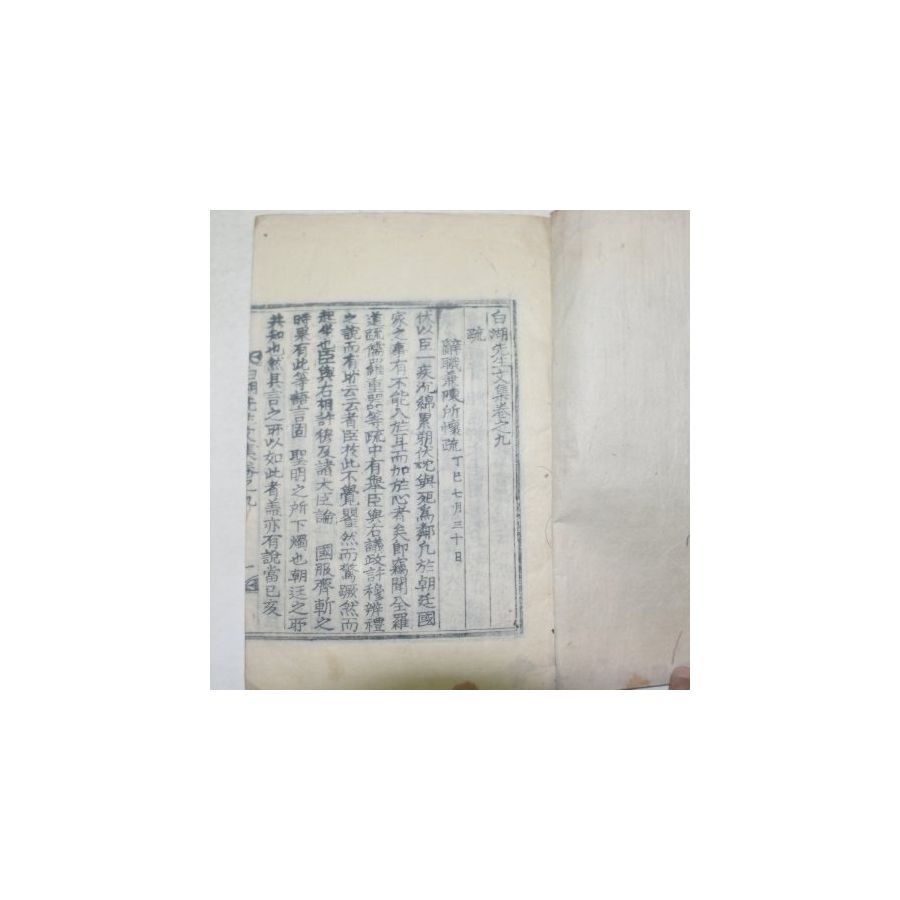 白湖先生文集卷之九
疏
辭職兼陳所懷疏 丁巳七月三十日
伏以臣一疾沉綿累朔伏枕與死爲鄰凡於朝廷國
家之事有不能入於耳而加於心者矣即竊聞全羅
道疏儒羅重器等疏中有擧臣與右議政許穆辨禮
之說而有所云云者臣於此不覺瞿然而驚蹶然而
起坐也臣與右相許穆及諸大臣論 國服齊斬之
時果有此等語言固 聖明之所下燭也朝廷之所
共知也然其言之所以如此者蓋亦有說當己亥
白湖先生文集卷之九 一